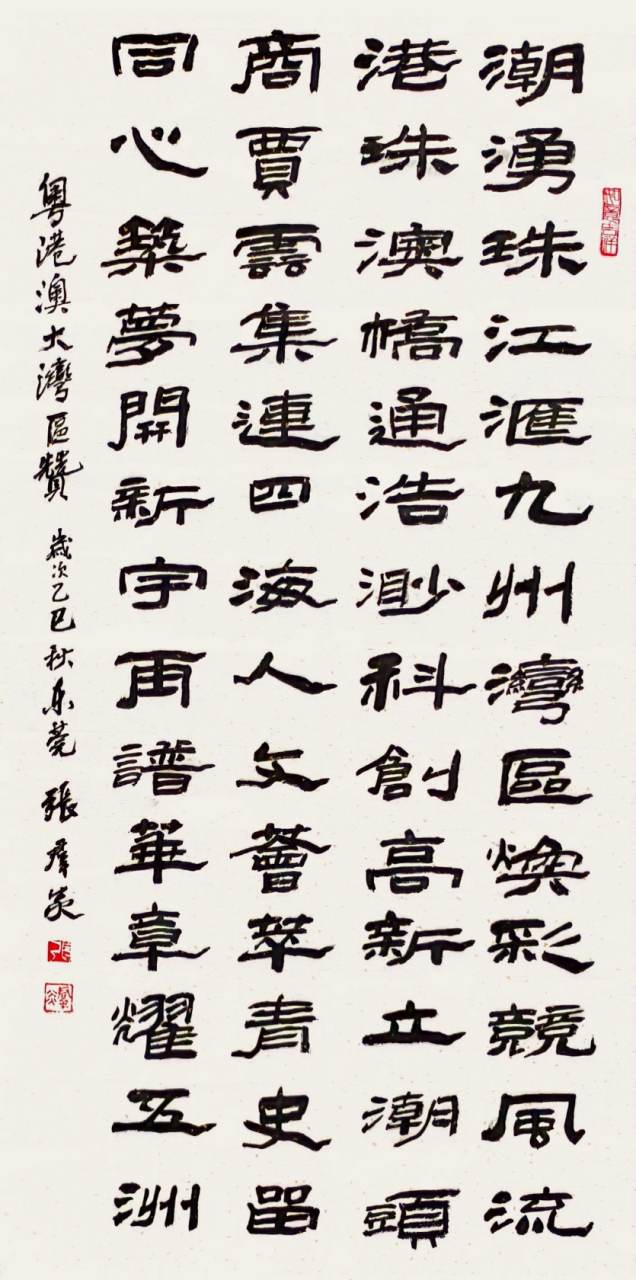 潮湧珠江滙九州灣區煥彩競風流
港珠澳橋通浩渺科創高新立潮頭
商賈雲集連四海人文薈萃青史留
同心築夢開新宇再譜華章耀五洲
粵港澳大灣區贊 歲次乙巳秋東莞 張群炎